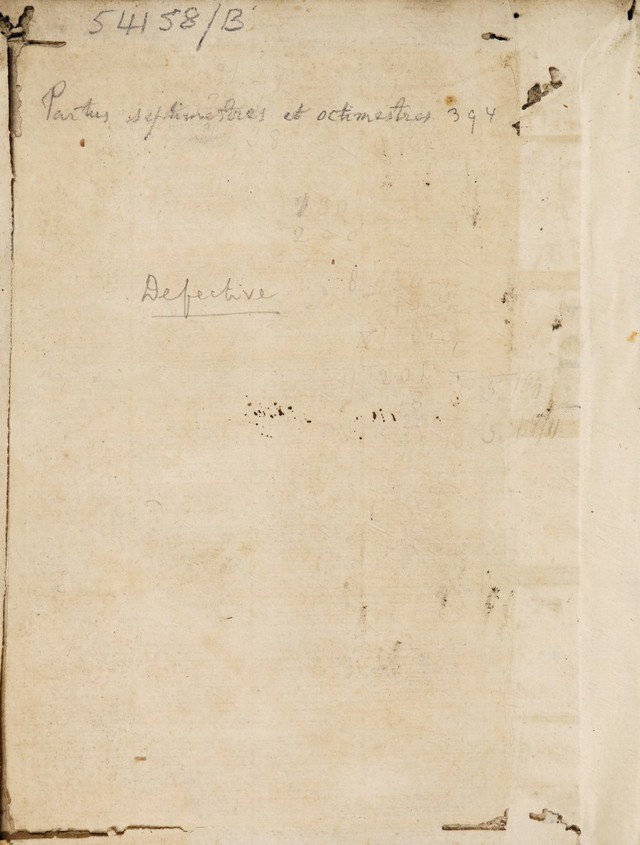 54158/B
Partus septimestres et octimestres 394
Defective